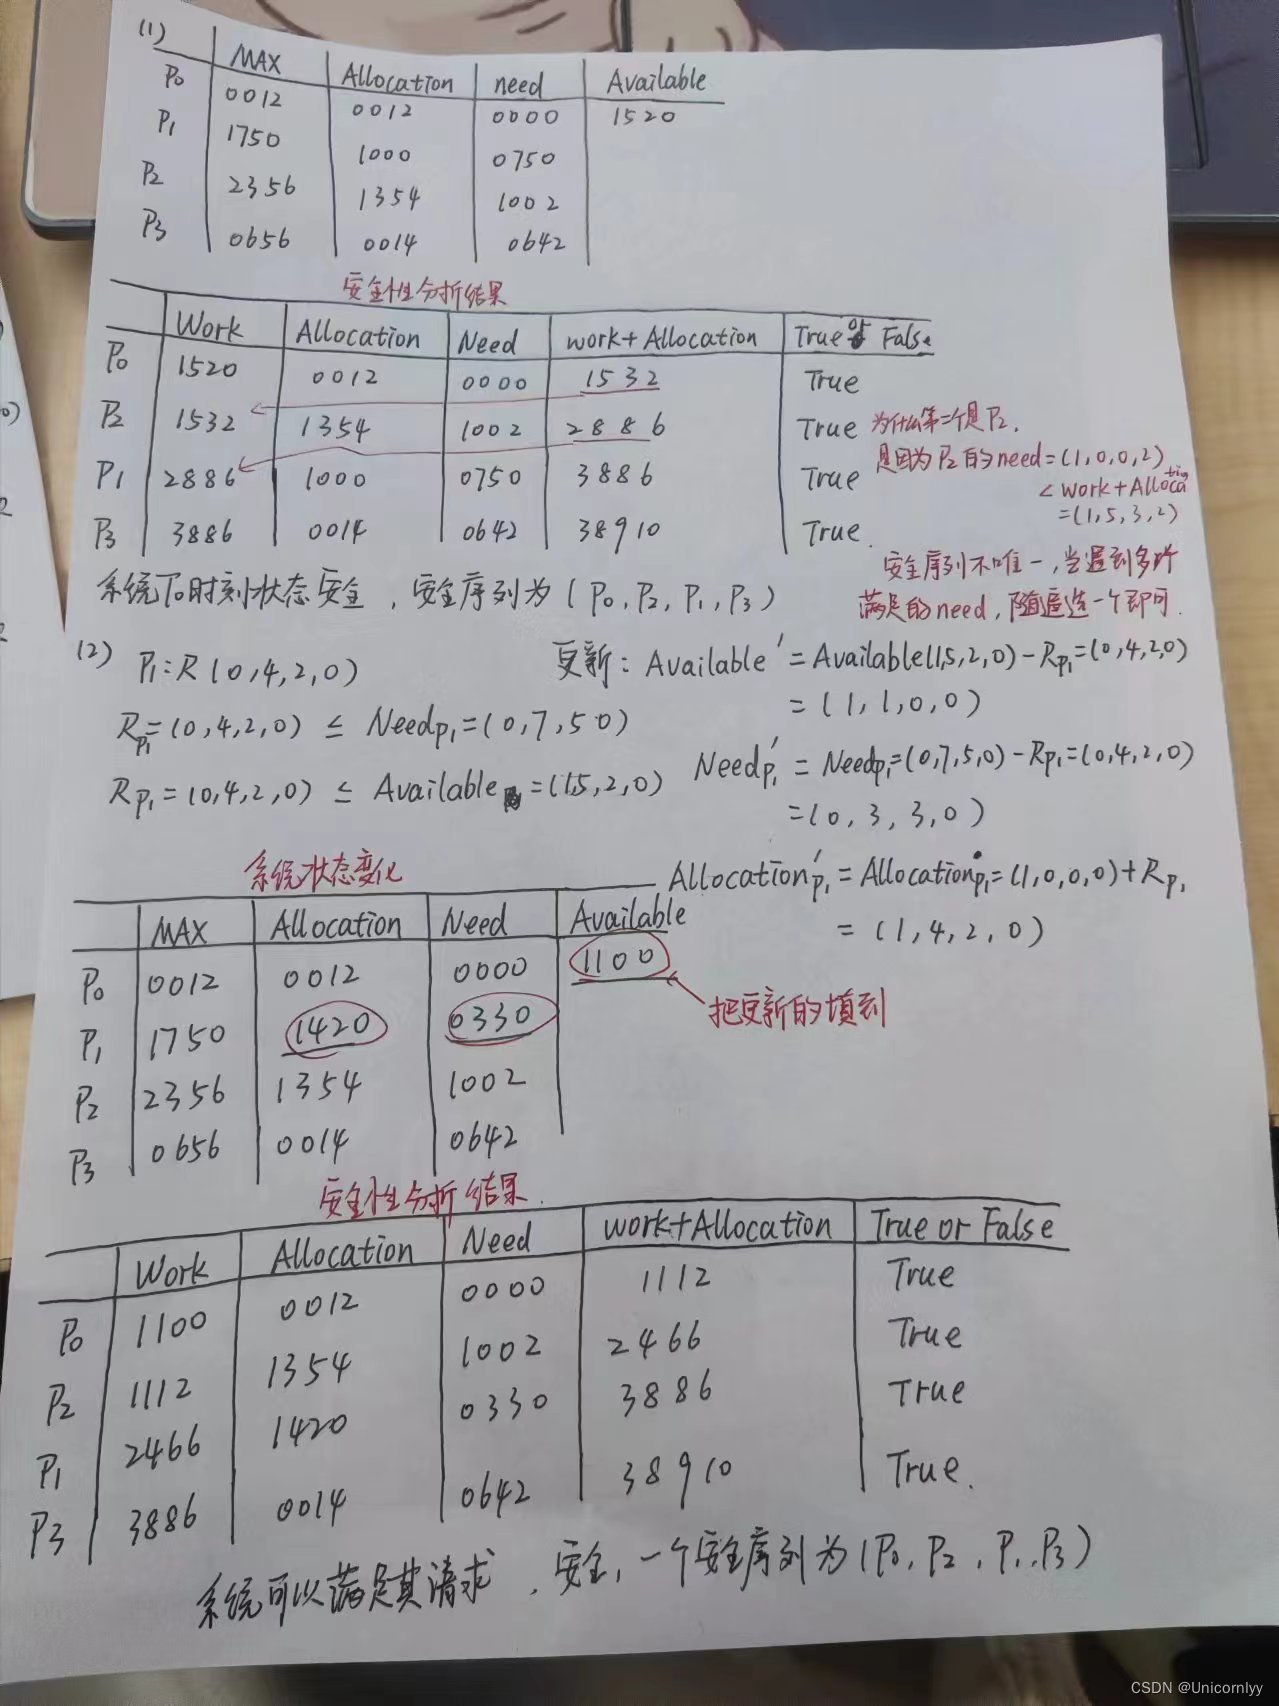 (1)
MAX Allocation need Available
P0 0012 0012 0000 1520
P1 1750 1000 0750
P2 2356 1354 1002
P3 0656 0014 0642
安全性分析结果
Work Allocation Need work+Allocation True or False
P0 1520 0012 0000 1532 True
P2 1532 1354 1002 2886 True
P1 2886 1000 0750 3886 True
P3 3886 0014 0642 38910 True.
为什么第二个是P2,
是因为P2的need=(1,0,0,2)
< work+Allocation
=(1,5,3,2)
安全序列不唯一,当遇到多个
满足的need,随便选一个即可.
系统T0时刻状态安全,安全序列为(P0,P2,P1,P3)
(2) P1:R(0,4,2,0)
Rp1=(0,4,2,0) ≤ Needp1=(0,7,5,0)
Rp1=(0,4,2,0) ≤ Available=(1,5,2,0)
更新: Available'=Available(1,5,2,0)-Rp1=(0,4,2,0)
=(1,1,0,0)
Needp1'=Needp1=(0,7,5,0)-Rp1=(0,4,2,0)
=(0,3,3,0)
Allocationp1'=Allocationp1=(1,0,0,0)+Rp1
=(1,4,2,0)
系统状态变化
MAX Allocation Need Available
P0 0012 0012 0000 1100
P1 1750 1420 0330
P2 2356 1354 1002
P3 0656 0014 0642
把更新的填到
安全性分析结果.
Work Allocation Need work+Allocation True or False
P0 1100 0012 0000 1112 True
P2 1112 1354 1002 2466 True
P1 2466 1420 0330 3886 True
P3 3886 0014 0642 38910 True.
系统可以满足其请求,安全,一个安全序列为(P0,P2,P1,P3)
CSDN @Unicornlyy